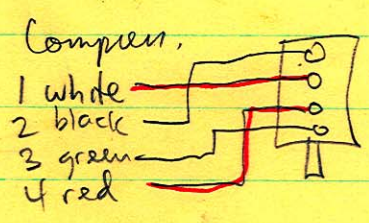 Compress.
1 white
2 black
3 green
4 red